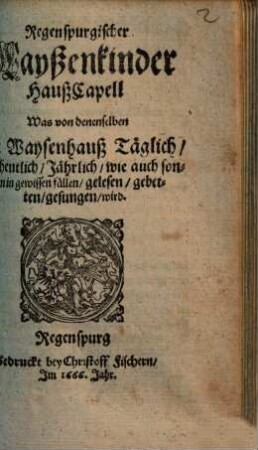 2
Regenspurgischer
Wayßenkinder
HaußCapell
Was von denenselben
Waysenhauß Täglich/
hentlich/Jährlich/wie auch son-
in gewissen fällen/gelesen/gebet-
ten/gesungen/wird.
Regenspurg
Gedruckt bey Christoff Fischern/
Im 1666. Jahr.